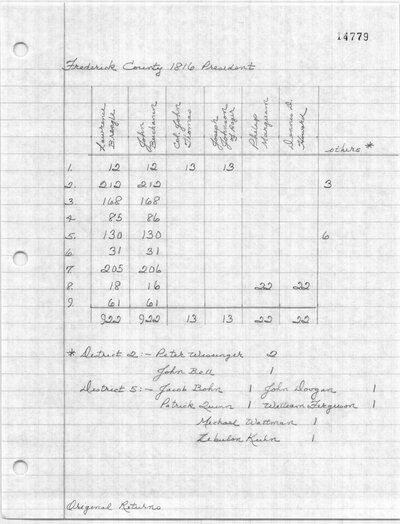 14779
Frederick County 1816 President
Lawrence Brengle John Buchanan Col. John Thomas Joseph Johnson of Roger Philip Margeum Dennis D. Howard others *
1. 12 12 13 13
2. 212 212 3
3. 168 168
4 85 86
5. 130 130 6
6. 31 31
7. 205 206
8. 18 16 22 22
9. 61 61
922 922 13 13 22 22
* District 2:- Peter Wissenger 2
John Boll 1
District 5:- Jacob Bohn 1 John Doogan 1
Patrick Quinn 1 William Ferguson 1
Michael Wattman 1
Zebulon Kuhn 1
Original Returns